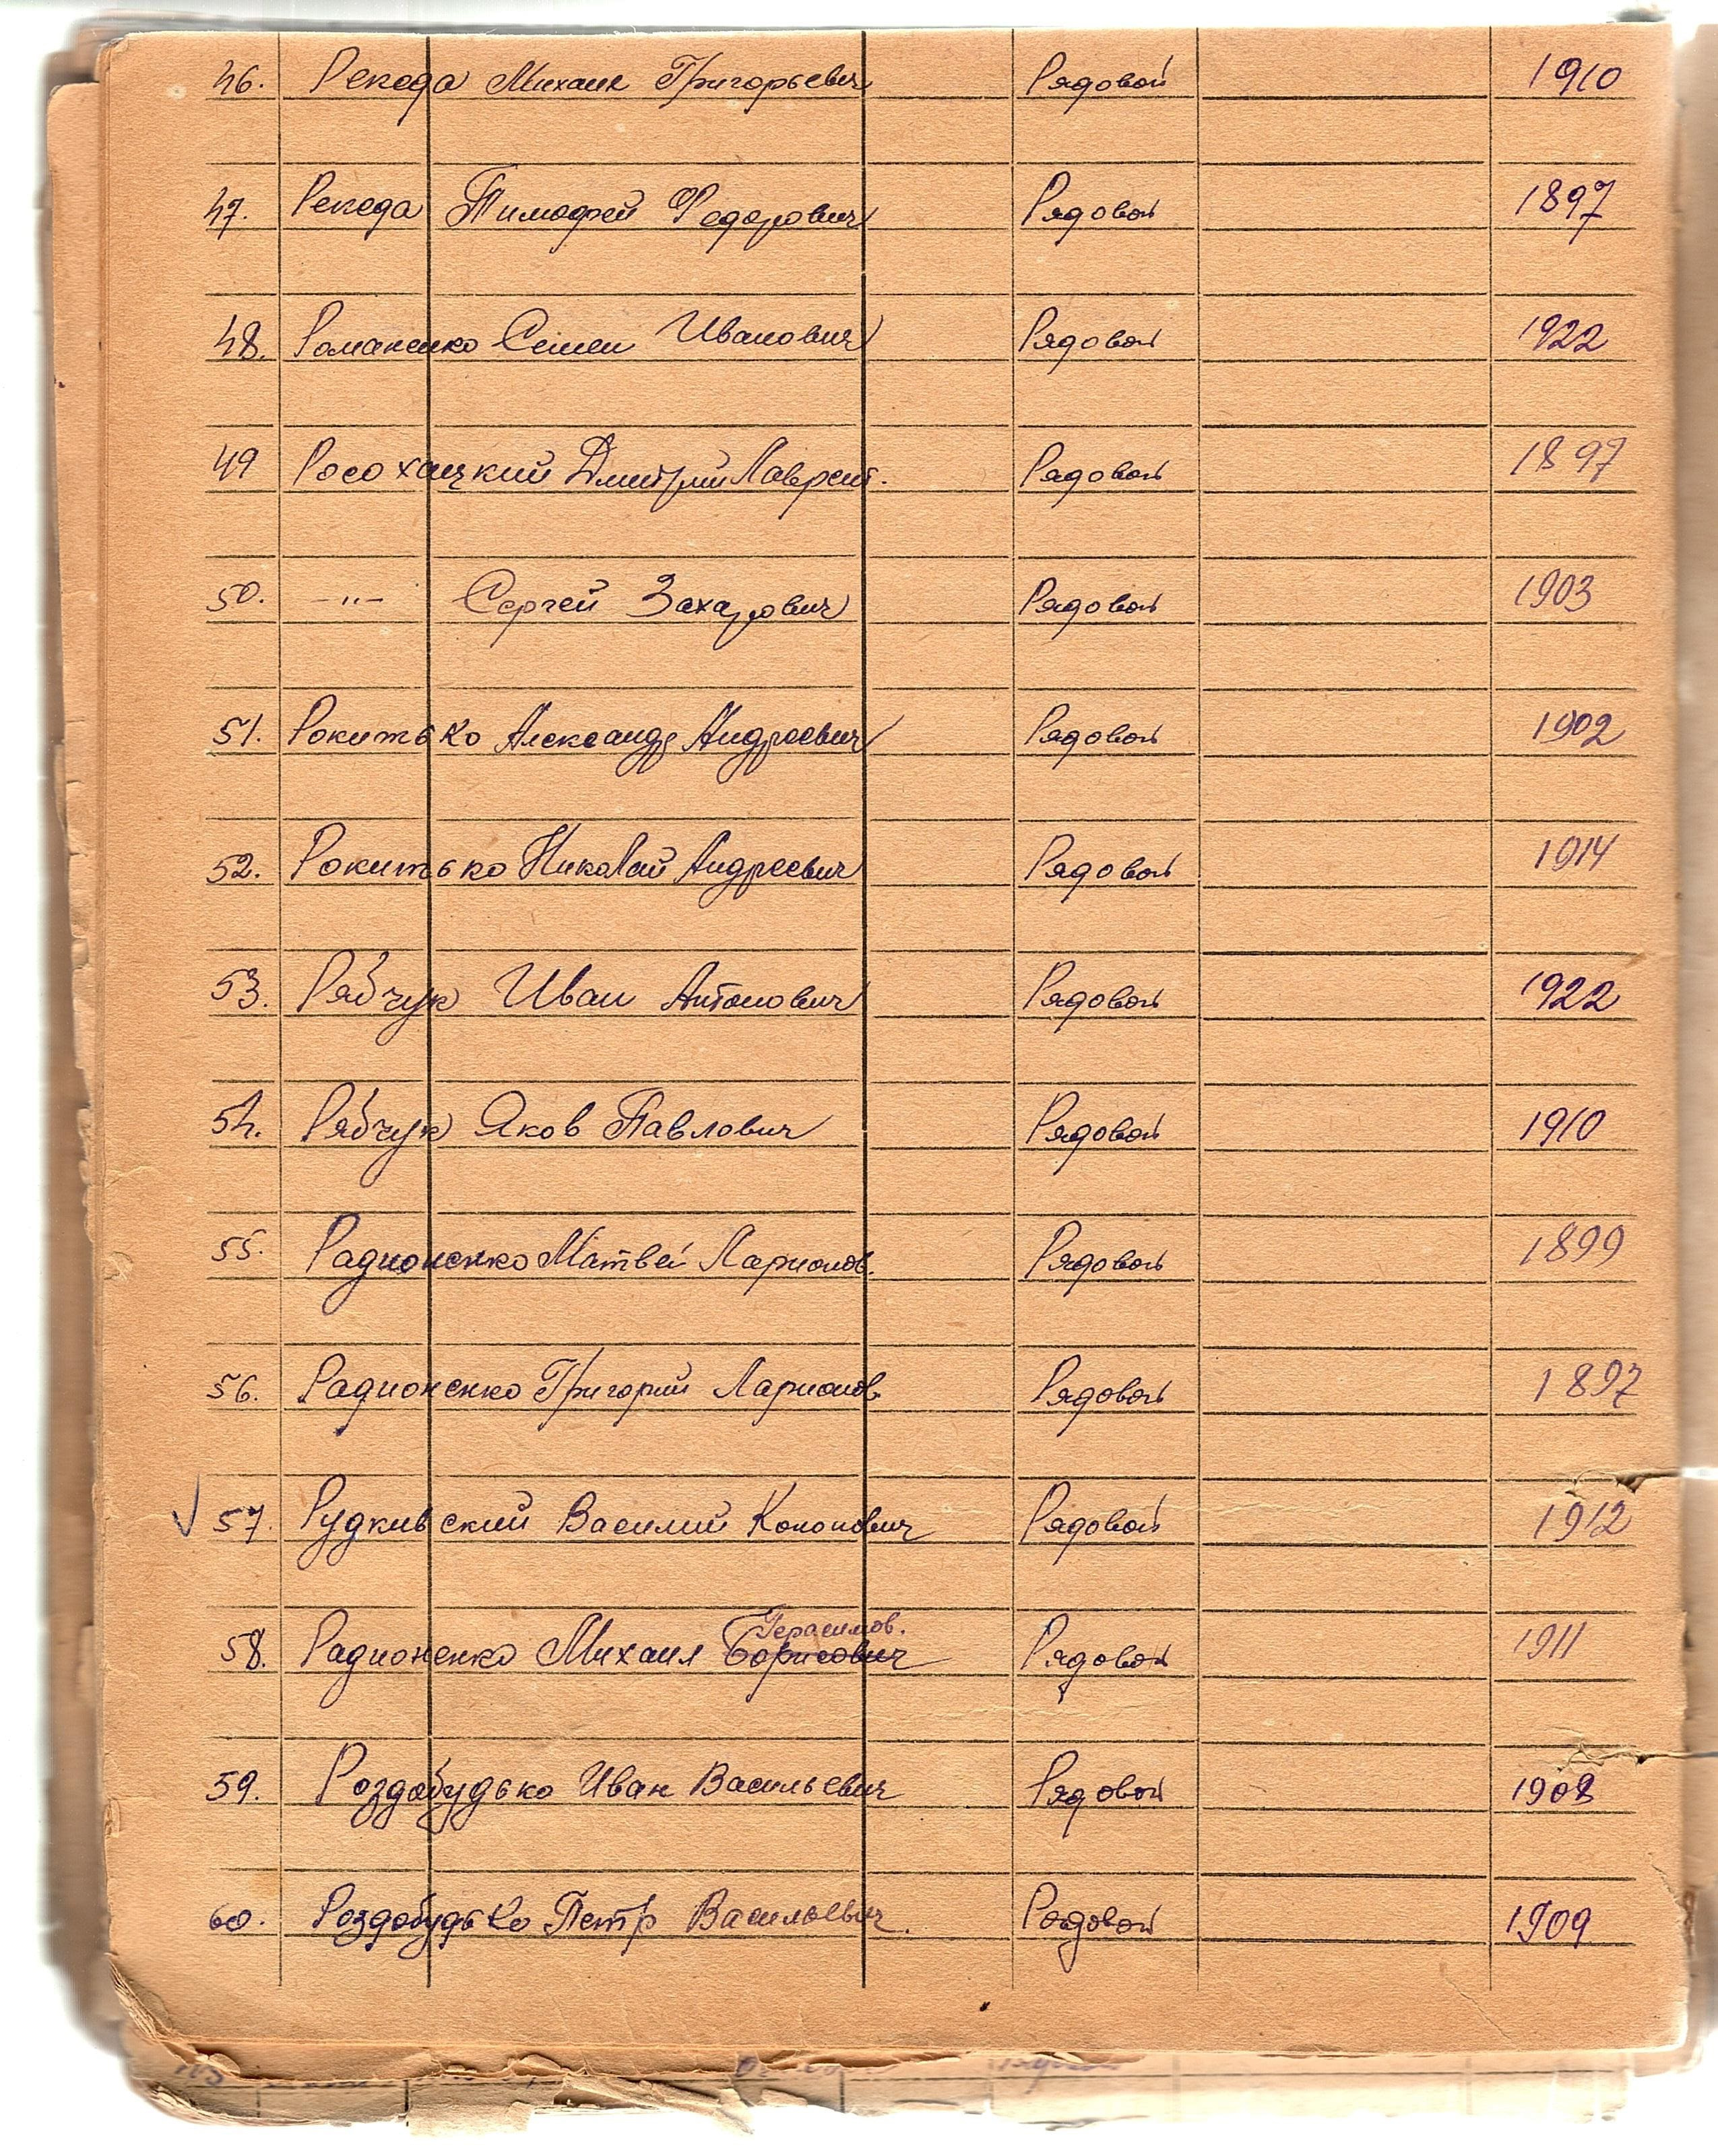 46. Рекеда Михаил Григорьевич Рядовой 1910
47. Рекеда Тимофей Федорович Рядовой 1897
48. Романенко Семен Иванович Рядовой 1922
49 Росохацкий Дмитрий Лаврент. Рядовой 1897
50. -"- Сергей Захарович Рядовой 1903
51. Рокитько Александр Андреевич Рядовой 1902
52. Рокитько Николай Андреевич Рядовой 1914
53. Рябчук Иван Антонович Рядовой 1922
54. Рябчук Яков Павлович Рядовой 1910
55. Радионенко Матвей Ларионов. Рядовой 1899
56. Радионенко Григорий Ларионов. Рядовой 1897
√ 57. Рудкивский Василий Кононович Рядовой 1912
Герасимов.
58. Радионенко Михаил Борисович Рядовой 1911
59. Роздобудько Иван Васильевич Рядовой 1908
60. Роздобудько Петр Васильевич. Рядовой 1909